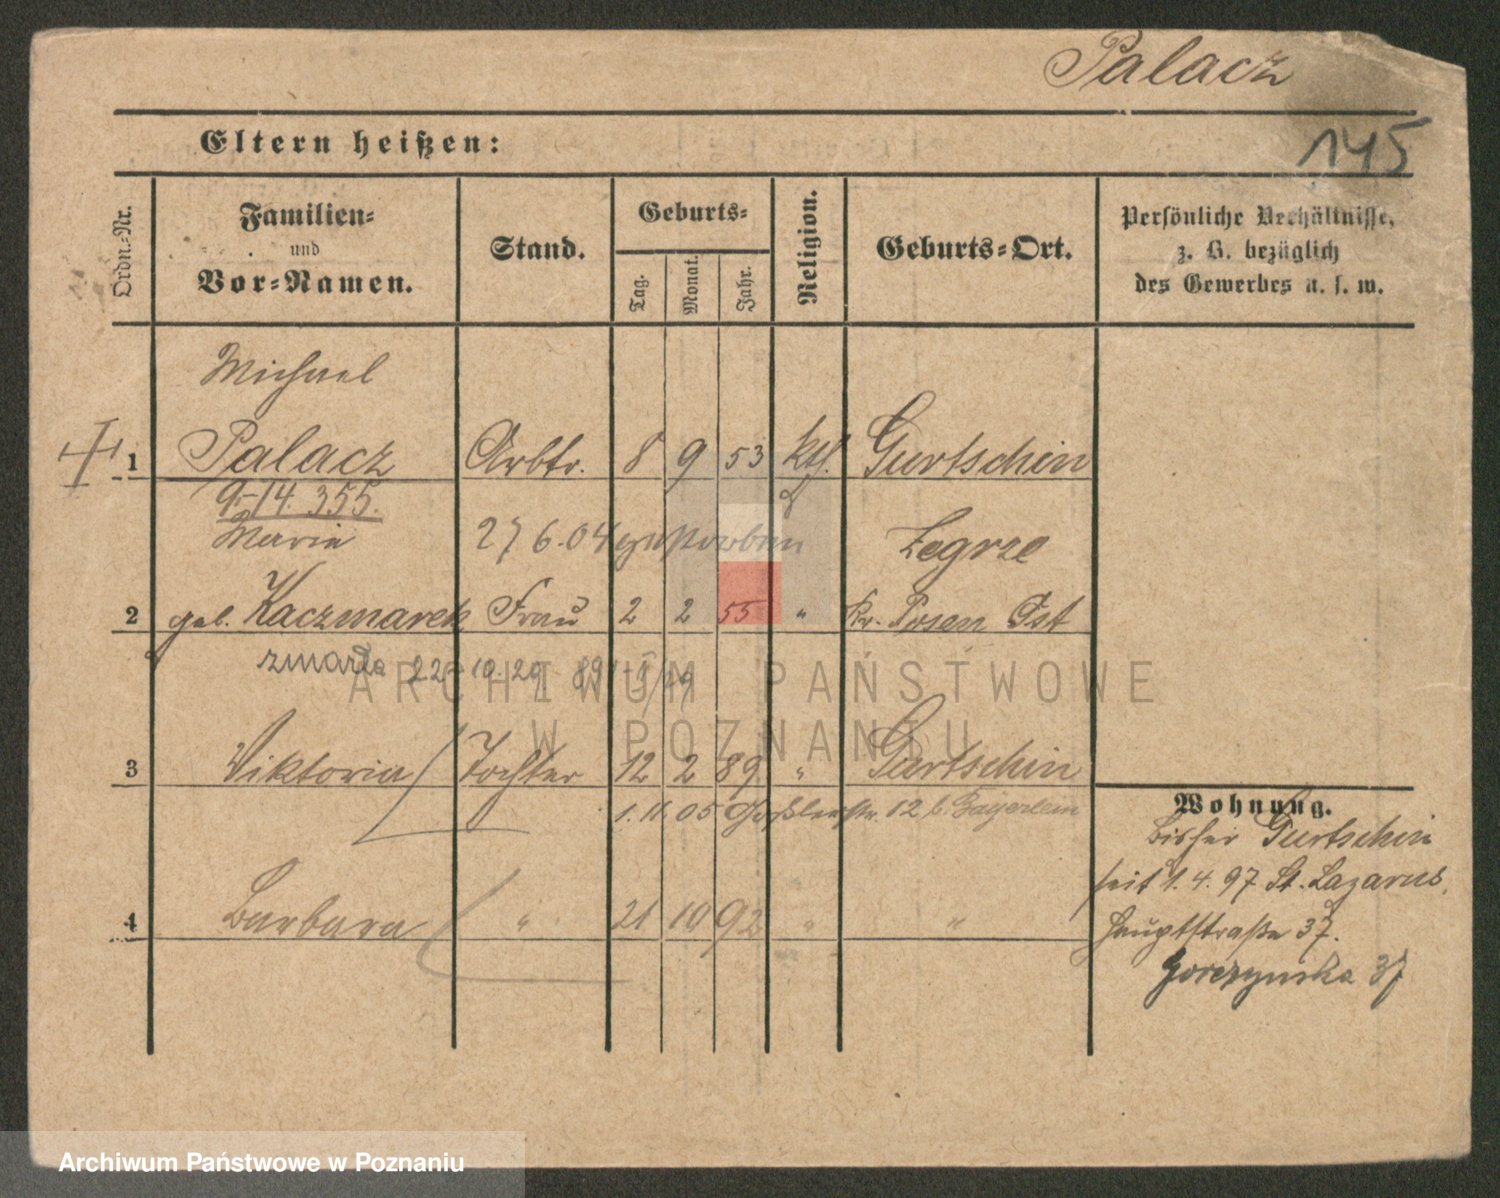 Palacz
145
Eltern heißen:
Ordn.-Nr.
Familien-
und
Vor-Namen.
Stand.
Geburts-
Tag.
Monat.
Jahr.
Religion.
Geburts-Ort.
Persönliche Verhältnisse,
z. B. bezüglich
des Gewerbes u. s. w.
Michael
1 Palacz Arbtr. 8 9 53 kth. Gurtschin
9-14. 355.
Marie 27 6.04 gestorben Zegrze
2 geb. Kaczmarek Frau 2 2 55 " Kr. Posen Ost
zmarła 22-10.20
3 Viktoria Tochter 12 2 89 " Gurtschin
1. 11. 05 Goßlerstr. 12 b. Bayerlein
4 Barbara " 21 10 92 " "
Wohnung.
bisher Gurtschin
seit 1. 4. 97 St. Lazarus,
Hauptstraße 37.
Gorczynska 37
ARCHIWUM PAŃSTWOWE
W POZNANIU
Archiwum Państwowe w Poznaniu